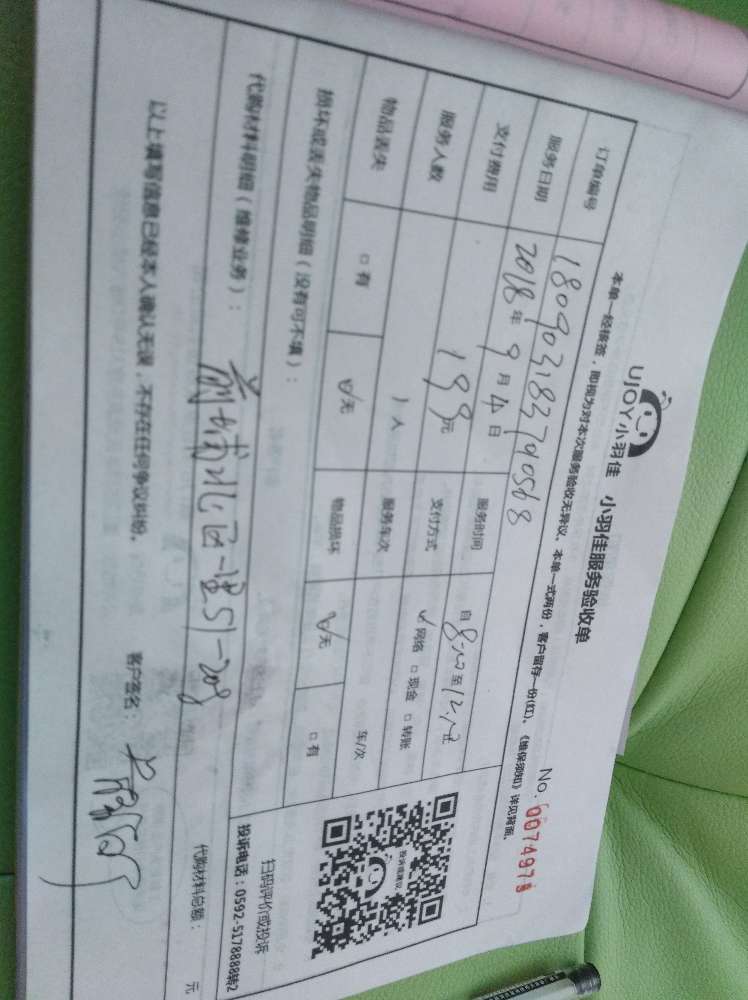 UJOY小羽佳 小羽佳服务验收单
No. 0074978
本单一经核签，即视为对本次服务验收无异议、本单一式两份，客户留存一份(红)、《维保须知》详见背面。
订单编号 1809031837190568
服务日期 2018年9月4日 服务时间 自8:00至12:00
支付费用 199元 支付方式 ☑网络 □现金 □转账
服务人数 1人 服务车次 车/次
物品丢失 □有 ☑无 物品损坏 ☑无 □有
损坏或丢失物品明细（没有可不填）：
扫码评价或投诉
投诉电话：0592-5178888转2
代购材料明细（维修业务）：
前埔北区一里51-208
代购材料总额： 元
以上填写信息已经本人确认无误，不存在任何争议纠纷。 客户签名：